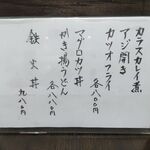 カラスカレイ煮
アジ開き
カツオフライ
各八〇〇円
マグロカツ丼
かき揚うどん
各八八〇円
鉄火丼
九八〇円